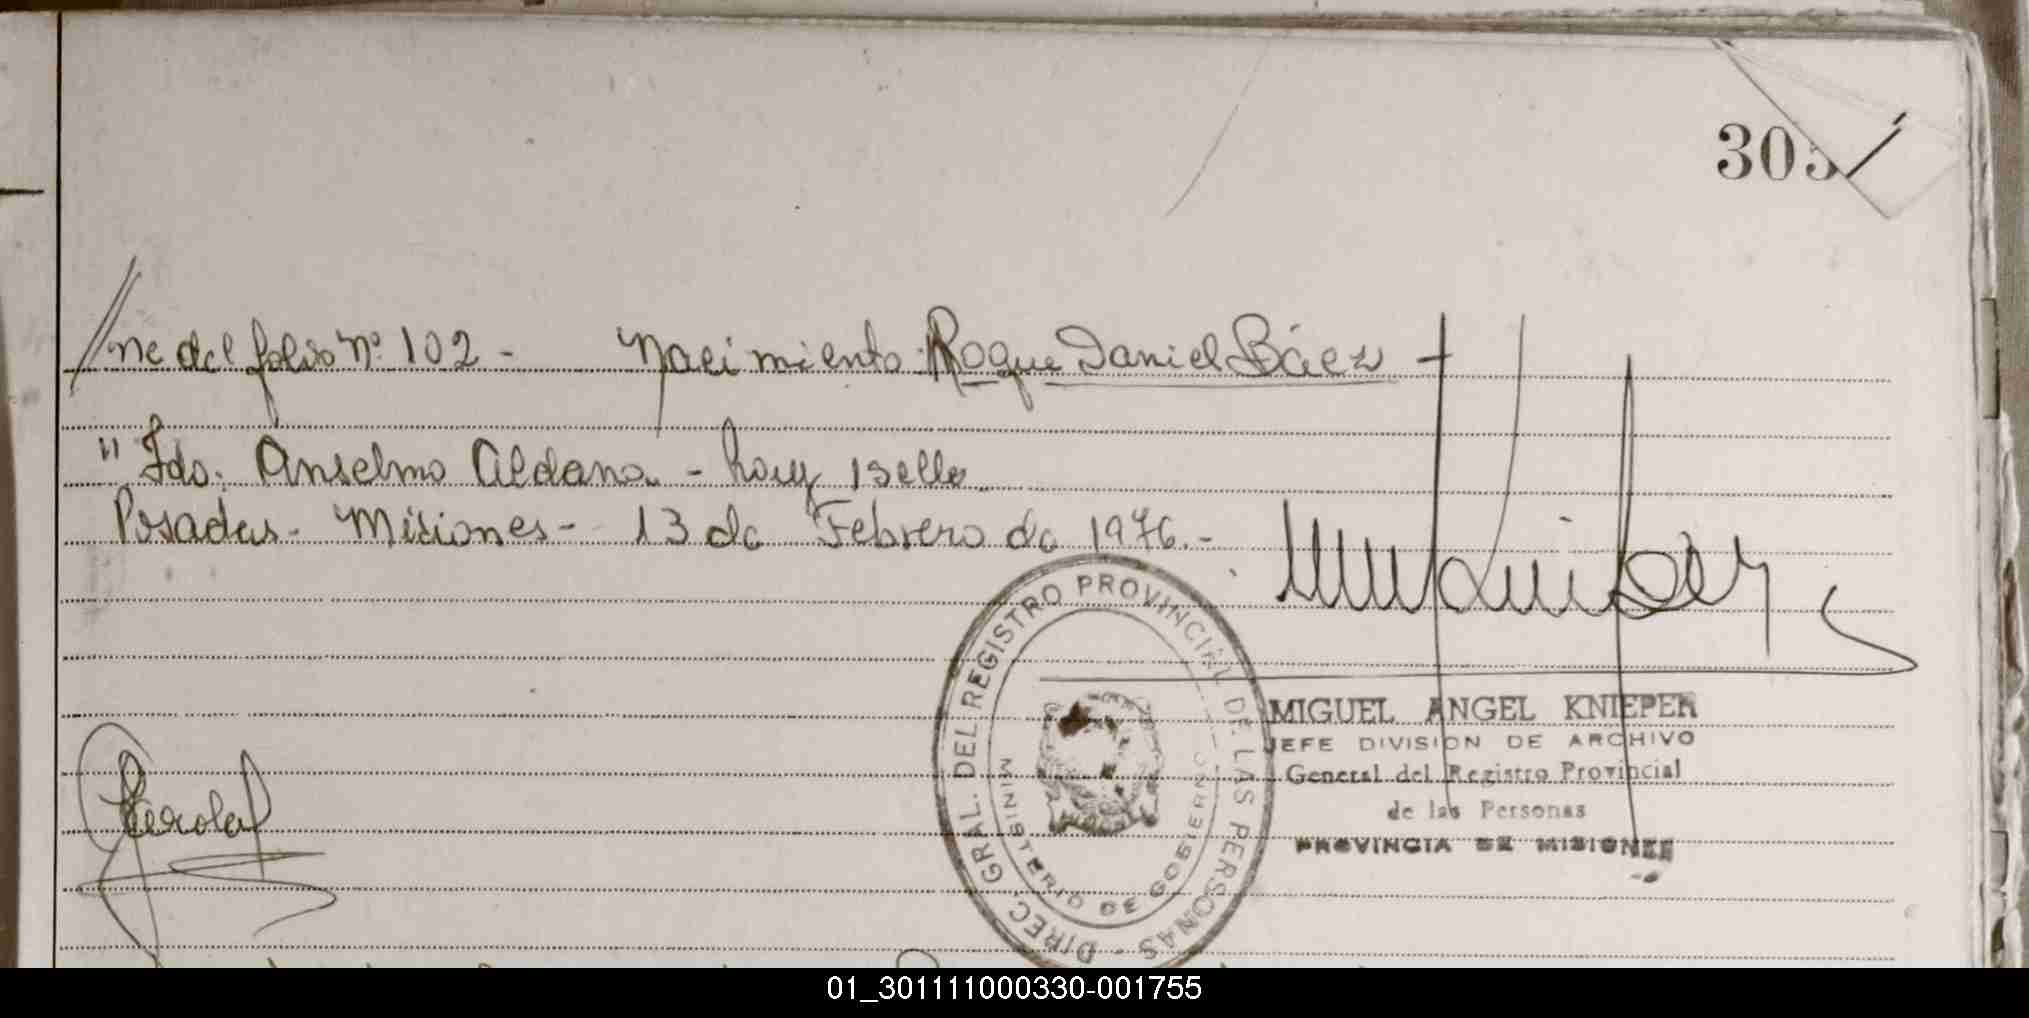 305
//ne del folio Nº 102 - Nacimiento: Roque Daniel Báez
" Fdo: Anselmo Aldana - hay sello
Posadas - Misiones - 13 de Febrero de 1976.-
DIREC. GRAL. DEL REGISTRO PROVINCIAL DE LAS PERSONAS -
MINISTERIO DE GOBIERNO
MIGUEL ANGEL KNIEPER
JEFE DIVISION DE ARCHIVO
General del Registro Provincial
de las Personas
PROVINCIA DE MISIONES
01_301111000330-001755